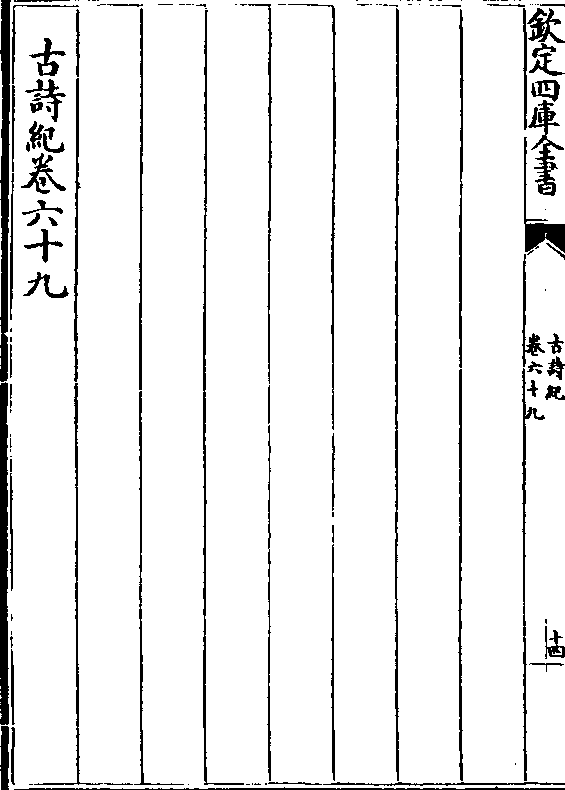 欽定四庫全書
古詩紀
卷六十九
十四
古詩紀卷六十九